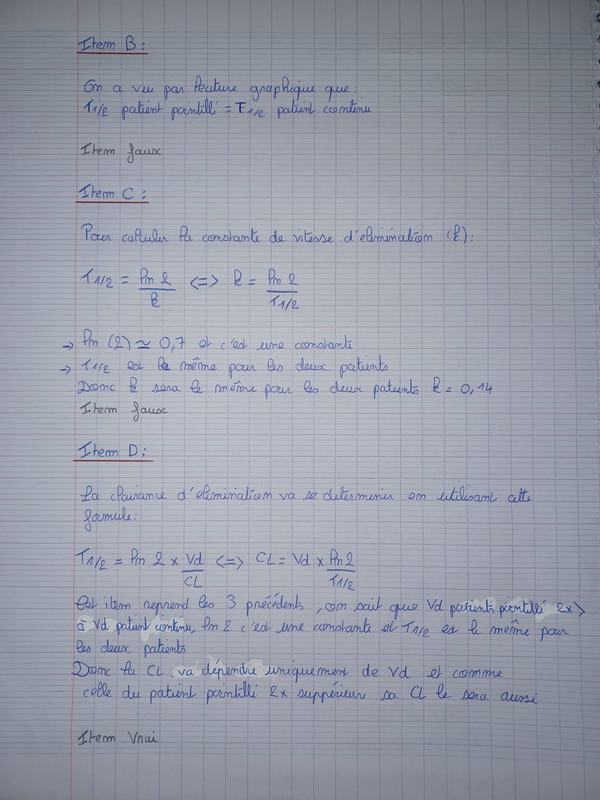 Item B:
On a vu par lecture graphique que:
T1/2 patient pointillé = T1/2 patient continu
Item faux
Item C:
Pour calculer la constante de vitesse d'élimination (k):
T1/2 = ln 2 / k <=> k = ln 2 / T1/2
→ ln (2) ≃ 0,7 et c'est une constante
→ T1/2 est le même pour les deux patients
Donc k sera le même pour les deux patients k = 0,14
Item faux
Item D:
La clairance d'elimination va se determiner en utilisant cette
formule:
T1/2 = ln 2 x Vd / CL <=> CL = Vd x ln 2 / T1/2
Cet item reprend les 3 précédents, on sait que Vd patients pointillé 2x >
à Vd patient continu, ln 2 c'est une constante et T1/2 est le même pour
les deux patients
Donc la CL va dépendre uniquement de Vd et comme
celle du patient pointillé 2x supérieure sa CL le sera aussi
Item Vrai